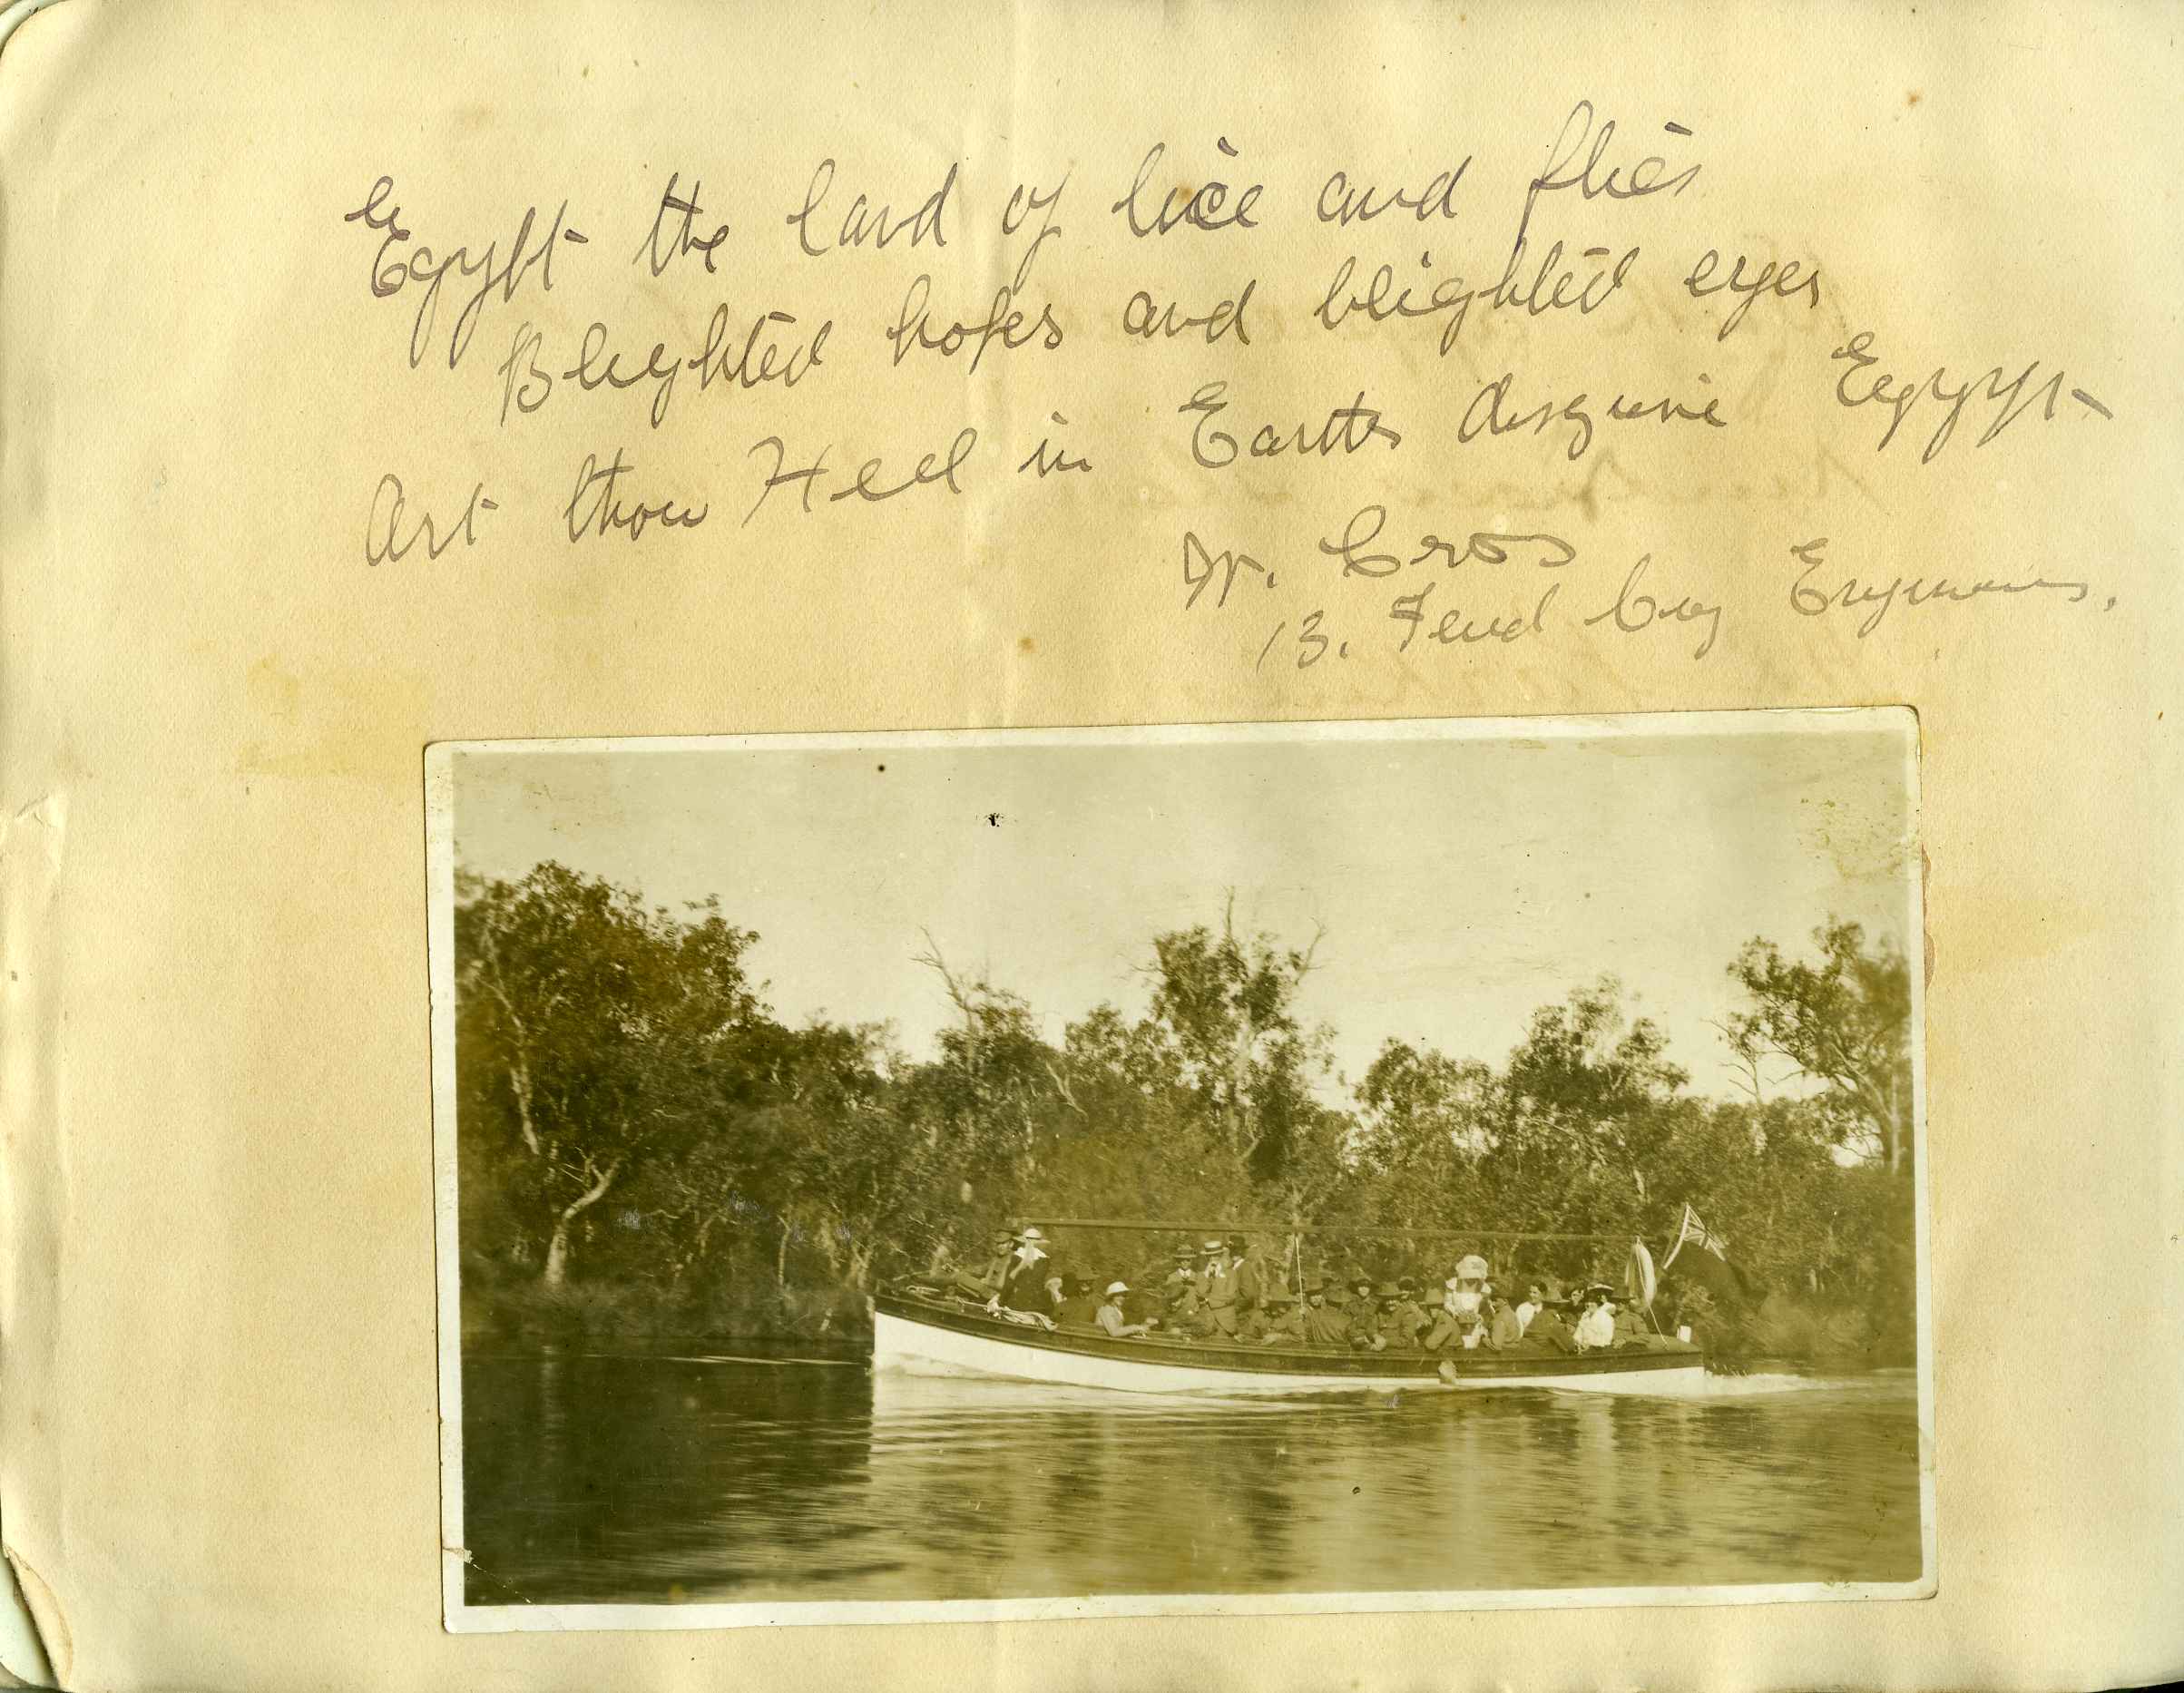 Egypt the land of lice and flies
Blighted hopes and blighted eyes
Art thou Hell in Earths disguise Egypt
13. Feild Coy Engineers.